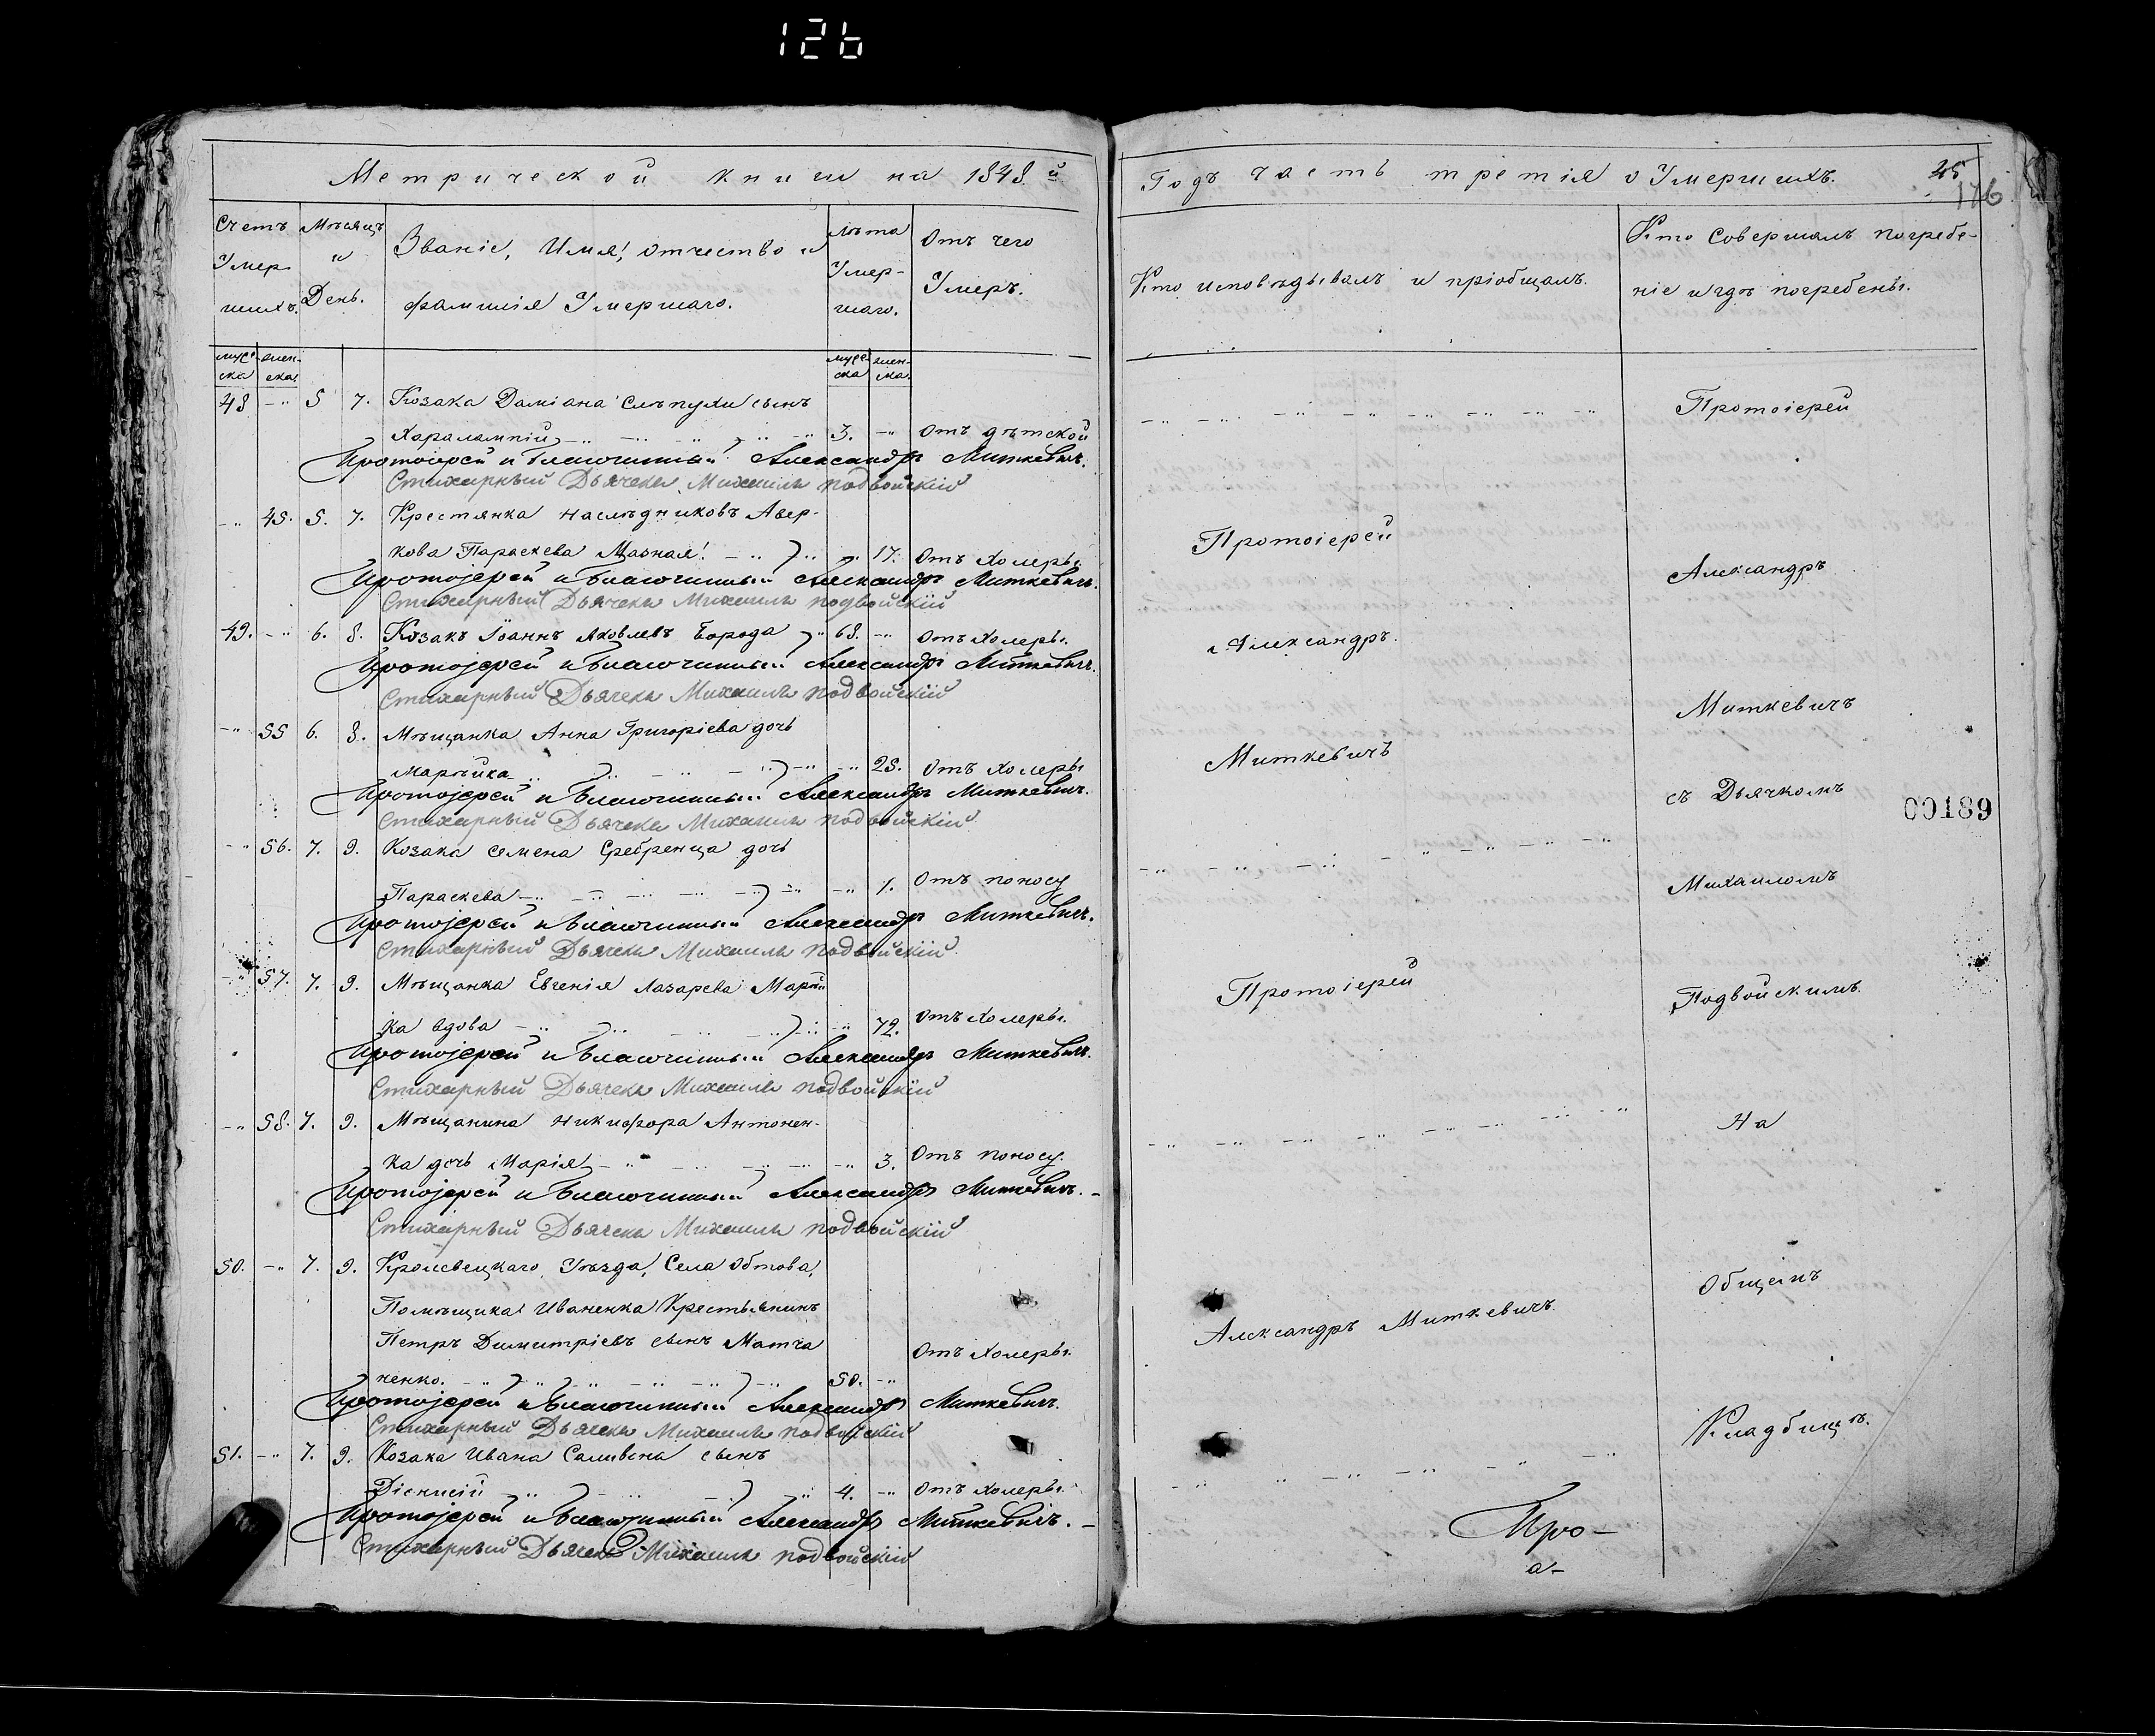 126
Метрической книги на 1848.й
Счетъ Умершихъ.
Мѣсяцъ и День.
Званіе, Имя, отчество и
фамилія Умершаго.
лѣта Умершаго.
Отъ чего Умеръ.
мужска женска
мужска женска
48. -„ 5 7. Козака Даміана Слѣпухи сынъ
Харалампій 3. -„ Отъ дѣтской
Протоіерей и Благочинный Александръ Миткевичъ.
Стихарный Дьячекъ Михаилъ Подвойскій
-„ 5. 7. Крестянка наслѣдниковъ Авер-
кова Параскева Мазная -„ 17. Отъ Холеры
Протоіерей и Благочинный Александръ Миткевичъ.
Стихарный Дьячекъ Михаилъ Подвойскій
49. -„ 6. 8. Козакъ Іоаннъ Яковлевъ Борода 68. -„ Отъ Холеры.
Протоіерей и Благочинный Александръ Миткевичъ.
Стихарный Дьячекъ Михаилъ Подвойскій
-„ 55 6. 8. Мѣщанка Анна Григоріева дочь
Марѣйка -„ 25. Отъ Холеры
Протоіерей и Благочинный Александръ Миткевичъ.
Стихарный Дьячекъ Михаилъ Подвойскій
-„ 56. 7. 9. Козака Семена Сребренца дочь
Параскева -„ 1. Отъ поносу
Протоіерей и Благочинный Александръ Миткевичъ.
Стихарный Дьячекъ Михаилъ Подвойскій
-„ 57. 7. 9. Мѣщанка Евгенія Лазарева Марѣй
ка вдова -„ 72. Отъ Холеры.
Протоіерей и Благочинный Александръ Миткевичъ.
Стихарный Дьячекъ Михаилъ Подвойскій
-„ 58. 7. 9. Мѣщанина Никифора Антонен-
ка дочь Марія -„ 3. Отъ поносу.
Протоіерей и Благочинный Александръ Миткевичъ.
Стихарный Дьячекъ Михаилъ Подвойскій
50. -„ 7. 9. Кролевецкаго Уѣзда, Села Обтова,
Помѣщика Иваненка Крестьянинъ
Петръ Димитріевъ сынъ Матча
ненко. 50. -„ Отъ Холеры.
Протоіерей и Благочинный Александръ Миткевичъ.
Стихарный Дьячекъ Михаилъ Подвойскій
51. -„ 7. 9. Козака Ивана Саливона сынъ
Діонисій 4. -„ Отъ Холеры.
Протоіерей и Благочинный Александръ Миткевичъ.
Стихарный Дьячекъ Михаилъ Подвойскій
Годъ часть третія о Умершихъ.
176
Кто исповѣдывалъ и пріобщалъ.
Кто Совершалъ погребе-
ніе и гдѣ погребены.
Протоіерей
Протоіерей
Александръ
Александръ.
Миткевичъ
Миткевичъ
съ Дьячкомъ
00189
Михаиломъ
Протоіерей
Подвойскимъ.
На
Общемъ
Александръ Миткевичъ.
Кладбищѣ.
Про-
а-